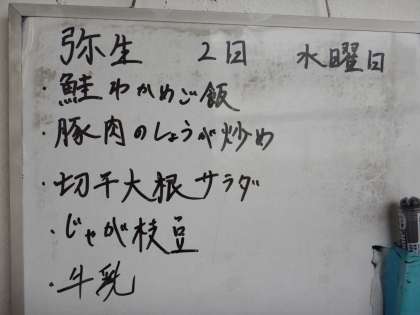 弥生 2日 水曜日
・鮭わかめご飯
・豚肉のしょうが炒め
・切干大根サラダ
・じゃが枝豆
・牛乳